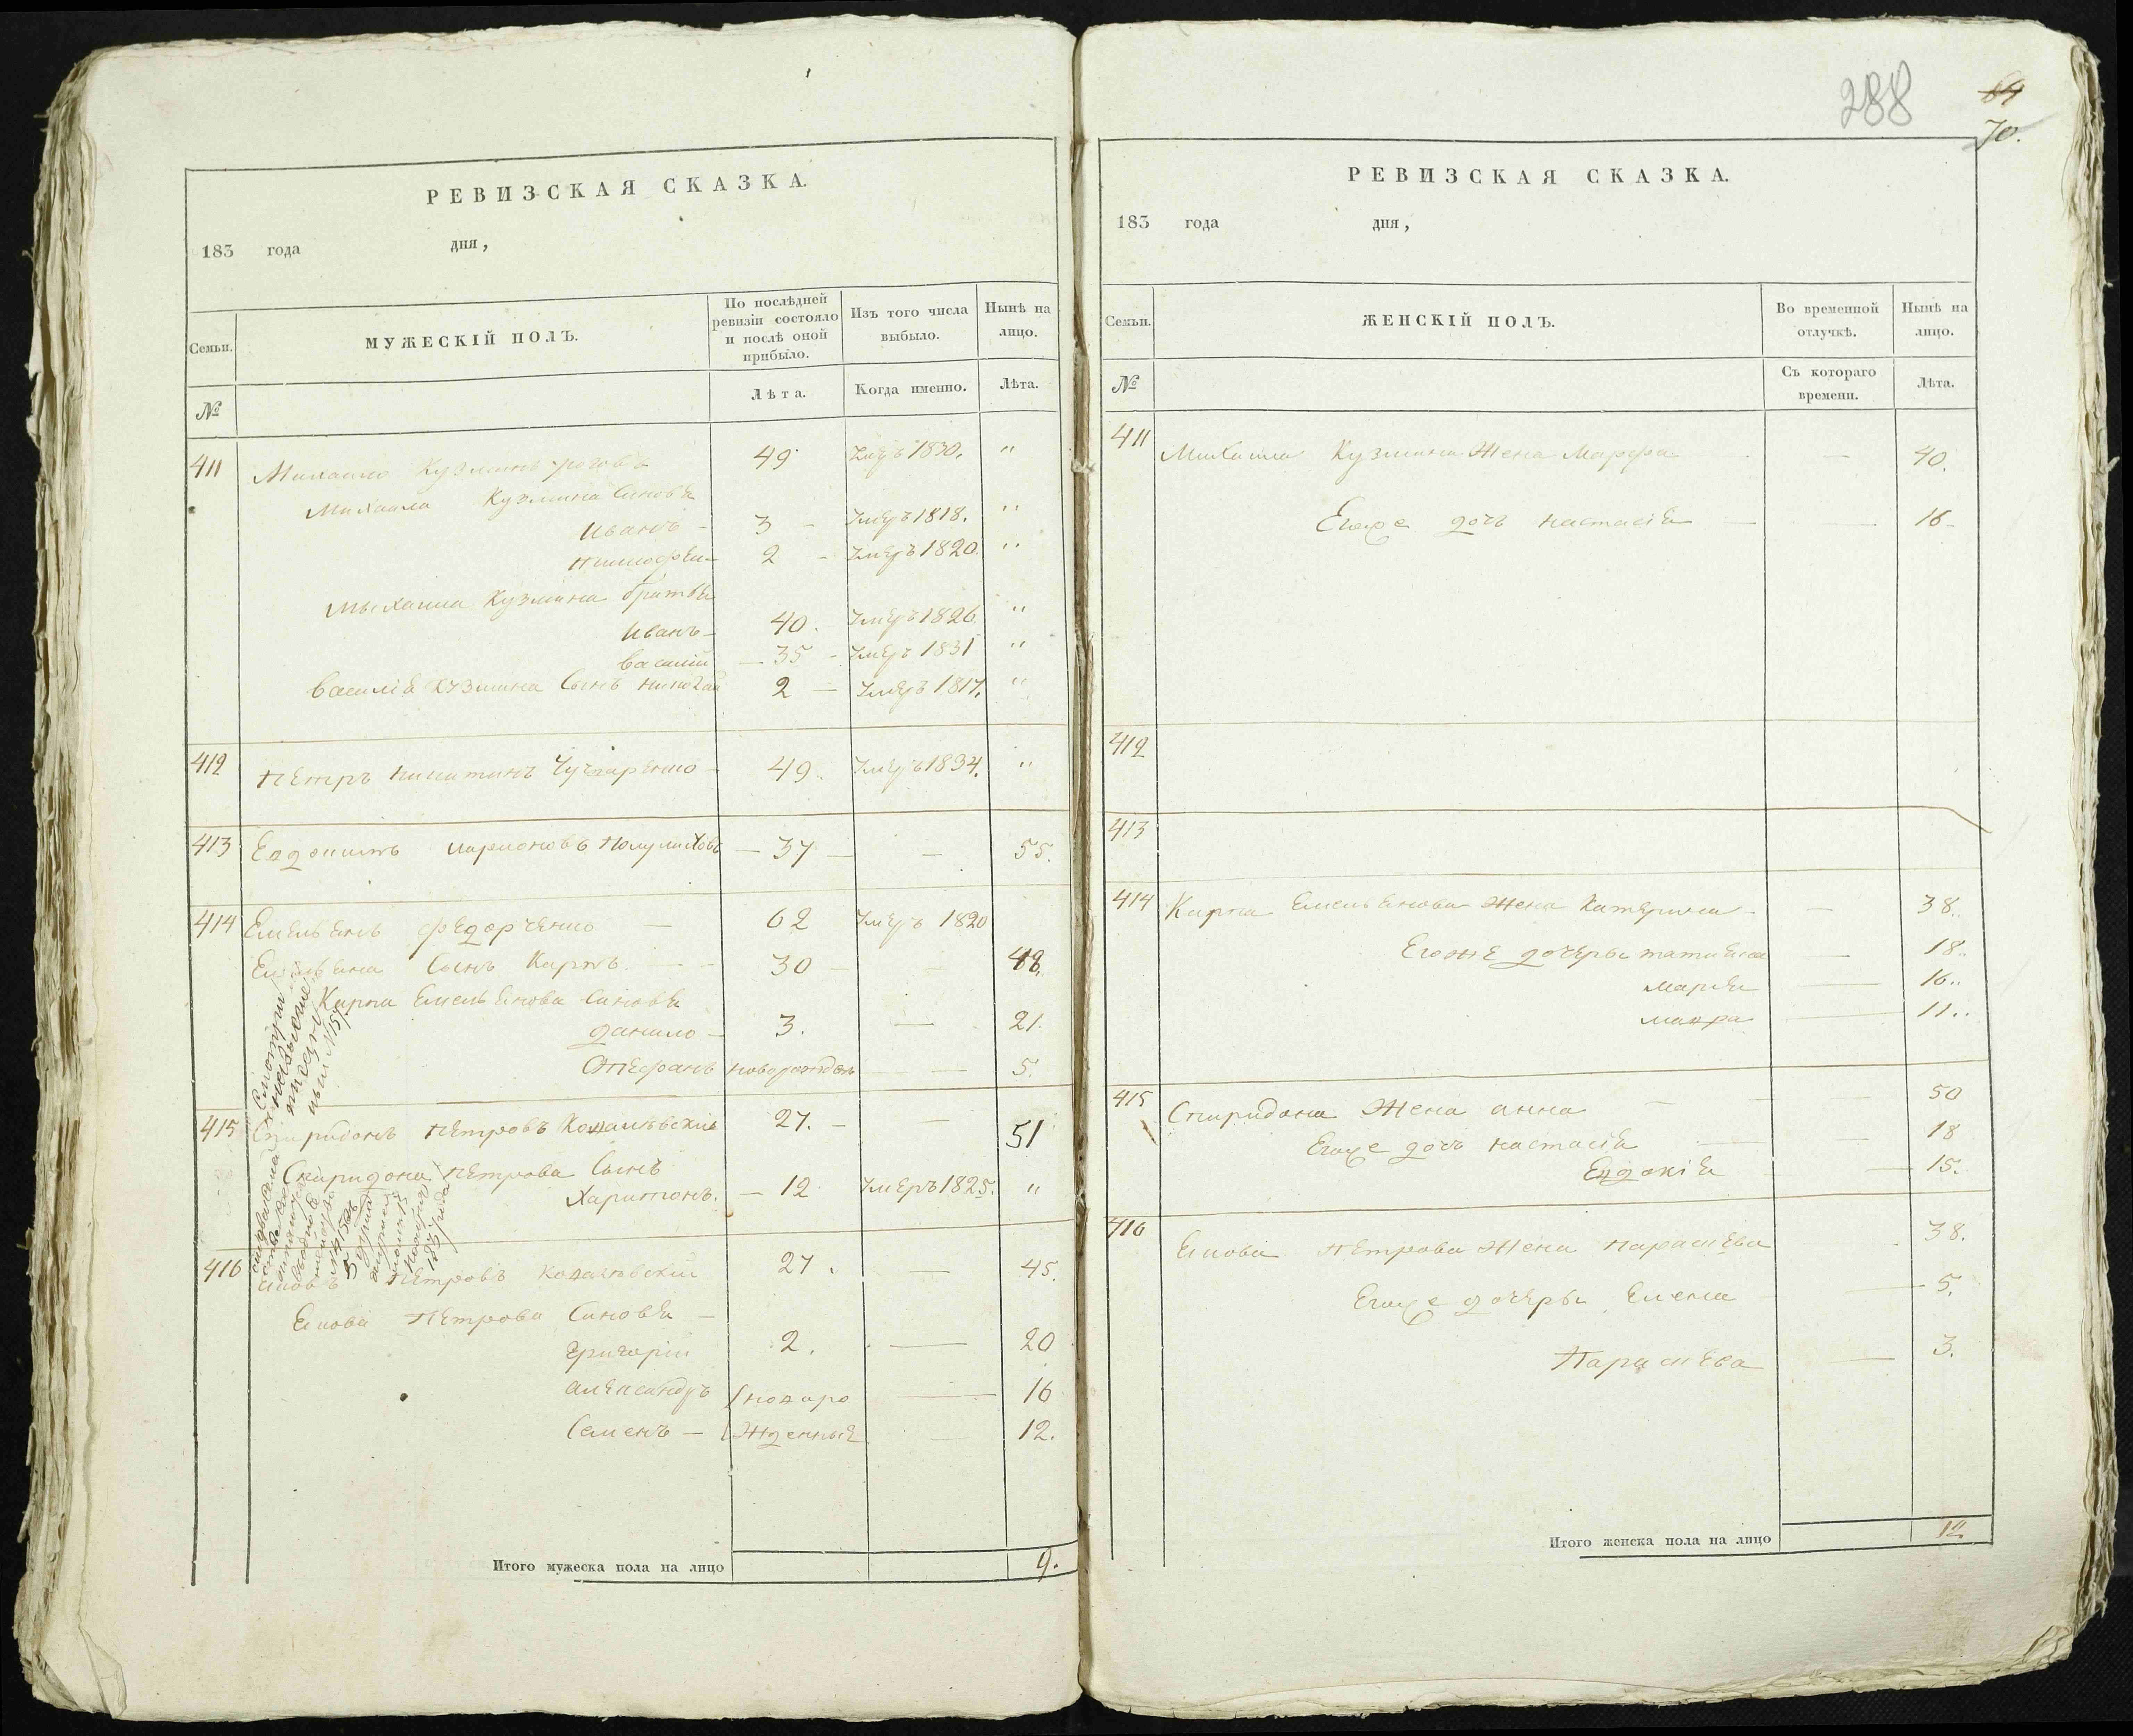 РЕВИЗСКАЯ СКАЗКА.
183 года дня,
Семьи. МУЖЕСКІЙ ПОЛЪ. По послѣдней ревизіи состояло и послѣ оной прибыло. Изъ того числа выбыло. Нынѣ на лицо.
№ Лѣта. Когда именно. Лѣта.
411 Михаило Кузминъ 49 Умеръ 1830. "
Михаила Кузмина Синовья
Иванъ - 3 - Умеръ 1818. "
Тимофеи - 2 - Умеръ 1820. "
Михаила Кузмина братья
Иванъ - 40. Умеръ 1826. "
Василій - 35 - Умеръ 1831 "
Василія Кузмина Сынъ Николай 2 - Умеръ 1817. "
412 Петръ Никитинъ 49. Умеръ 1834. "
413 Евдокимъ Иларионовъ - 37 - - 55.
414 Емельянъ Федорченко - 62 Умеръ 1820
Емельяна Сынъ Карпъ. - 30 - - 48.
Карпа Емельянова Синовья
Данило - 3. - 21.
Стефанъ новорожденъ - 5.
415 Спиридонъ Петровъ 27. - - 51
Спиридона Петрова Сынъ
Харитонъ. - 12 Умеръ 1825. "
416 Яковъ Петровъ 27. - 45.
Якова Петрова Синовья -
Григорій 2. - 20
Александръ новоро - 16
Семенъ - жденные - 12.
Итого мужеска пола на лицо 9.
288
69
70.
РЕВИЗСКАЯ СКАЗКА.
183 года дня,
Семьи. ЖЕНСКІЙ ПОЛЪ. Во временной отлучкѣ. Нынѣ на лицо.
№ Съ котораго времени. Лѣта.
411 Михаила Кузмина Жена Марфа - 40.
Егоже дочь Настасія - - 16-
412
413
414 Карпа Емельянова Жена Катерина - - 38.
Егоже дочеры Татияна - 18.
Марья - 16.
Мавра - 11.
415 Спиридона Жена Анна - - 50
Егоже дочь Настасія - - 18
Евдокія - 15.
416 Якова Петрова Жена Параскева 38.
Егоже дочеры Елена - 5.
Параскева - 3.
Итого женска пола на лицо 12